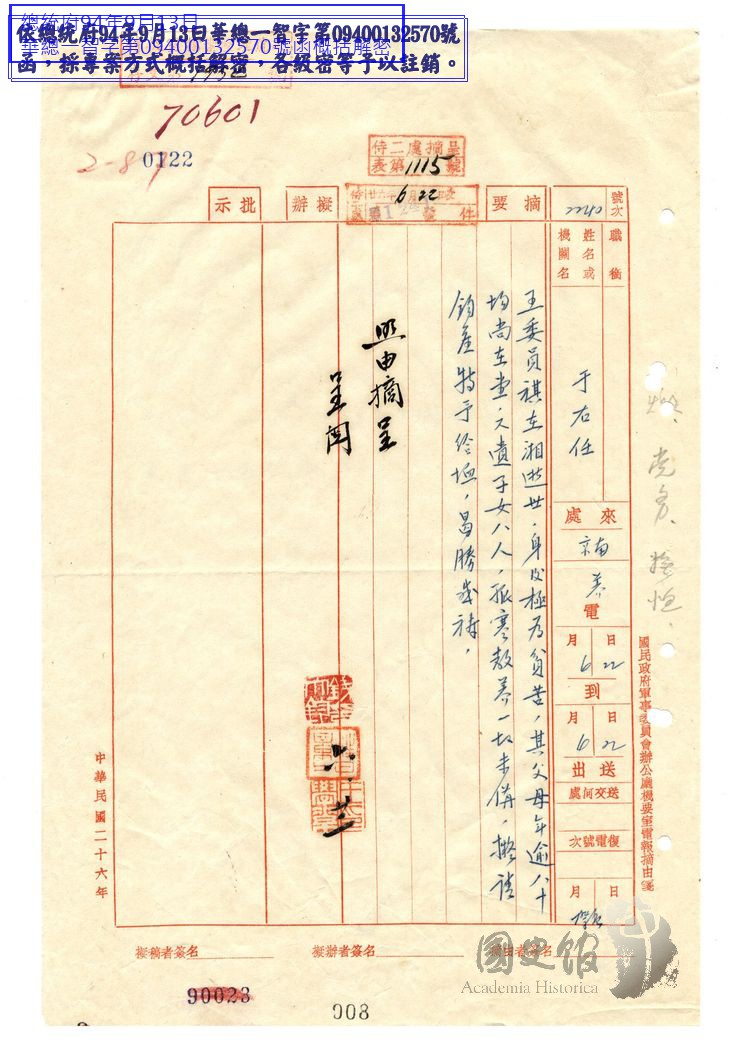 總統府94年9月13日
華總一智字第09400132570號函概括解密
依總統府94年9月13日華總一智字第09400132570號
函，採專案方式概括解密，各級密等予以註銷。
70601
2-8-
0122
呈摘處二侍
號1115第表
號次
2240
職稱
姓名或
機關名
于右任
來處
京南
養
電
月 日
6 22
到
月 日
6 22
送出
送交何處
復電號次
月 日
摘要
王委員祺在湘逝世，身後極為貧苦，其父母年逾八十
均尚在堂，又遺子女八人，孤寒教養一切未備，擬請
鈞座特予給卹，曷勝感禱，
擬辦
照由摘呈
呈閱
批示
六、廿
國民政府軍事委員會辦公廳機要室電報摘由箋
中華民國二十六年
摘由者簽名
擬辦者簽名
擬稿者簽名
90023
008
國史館
Academia Historica